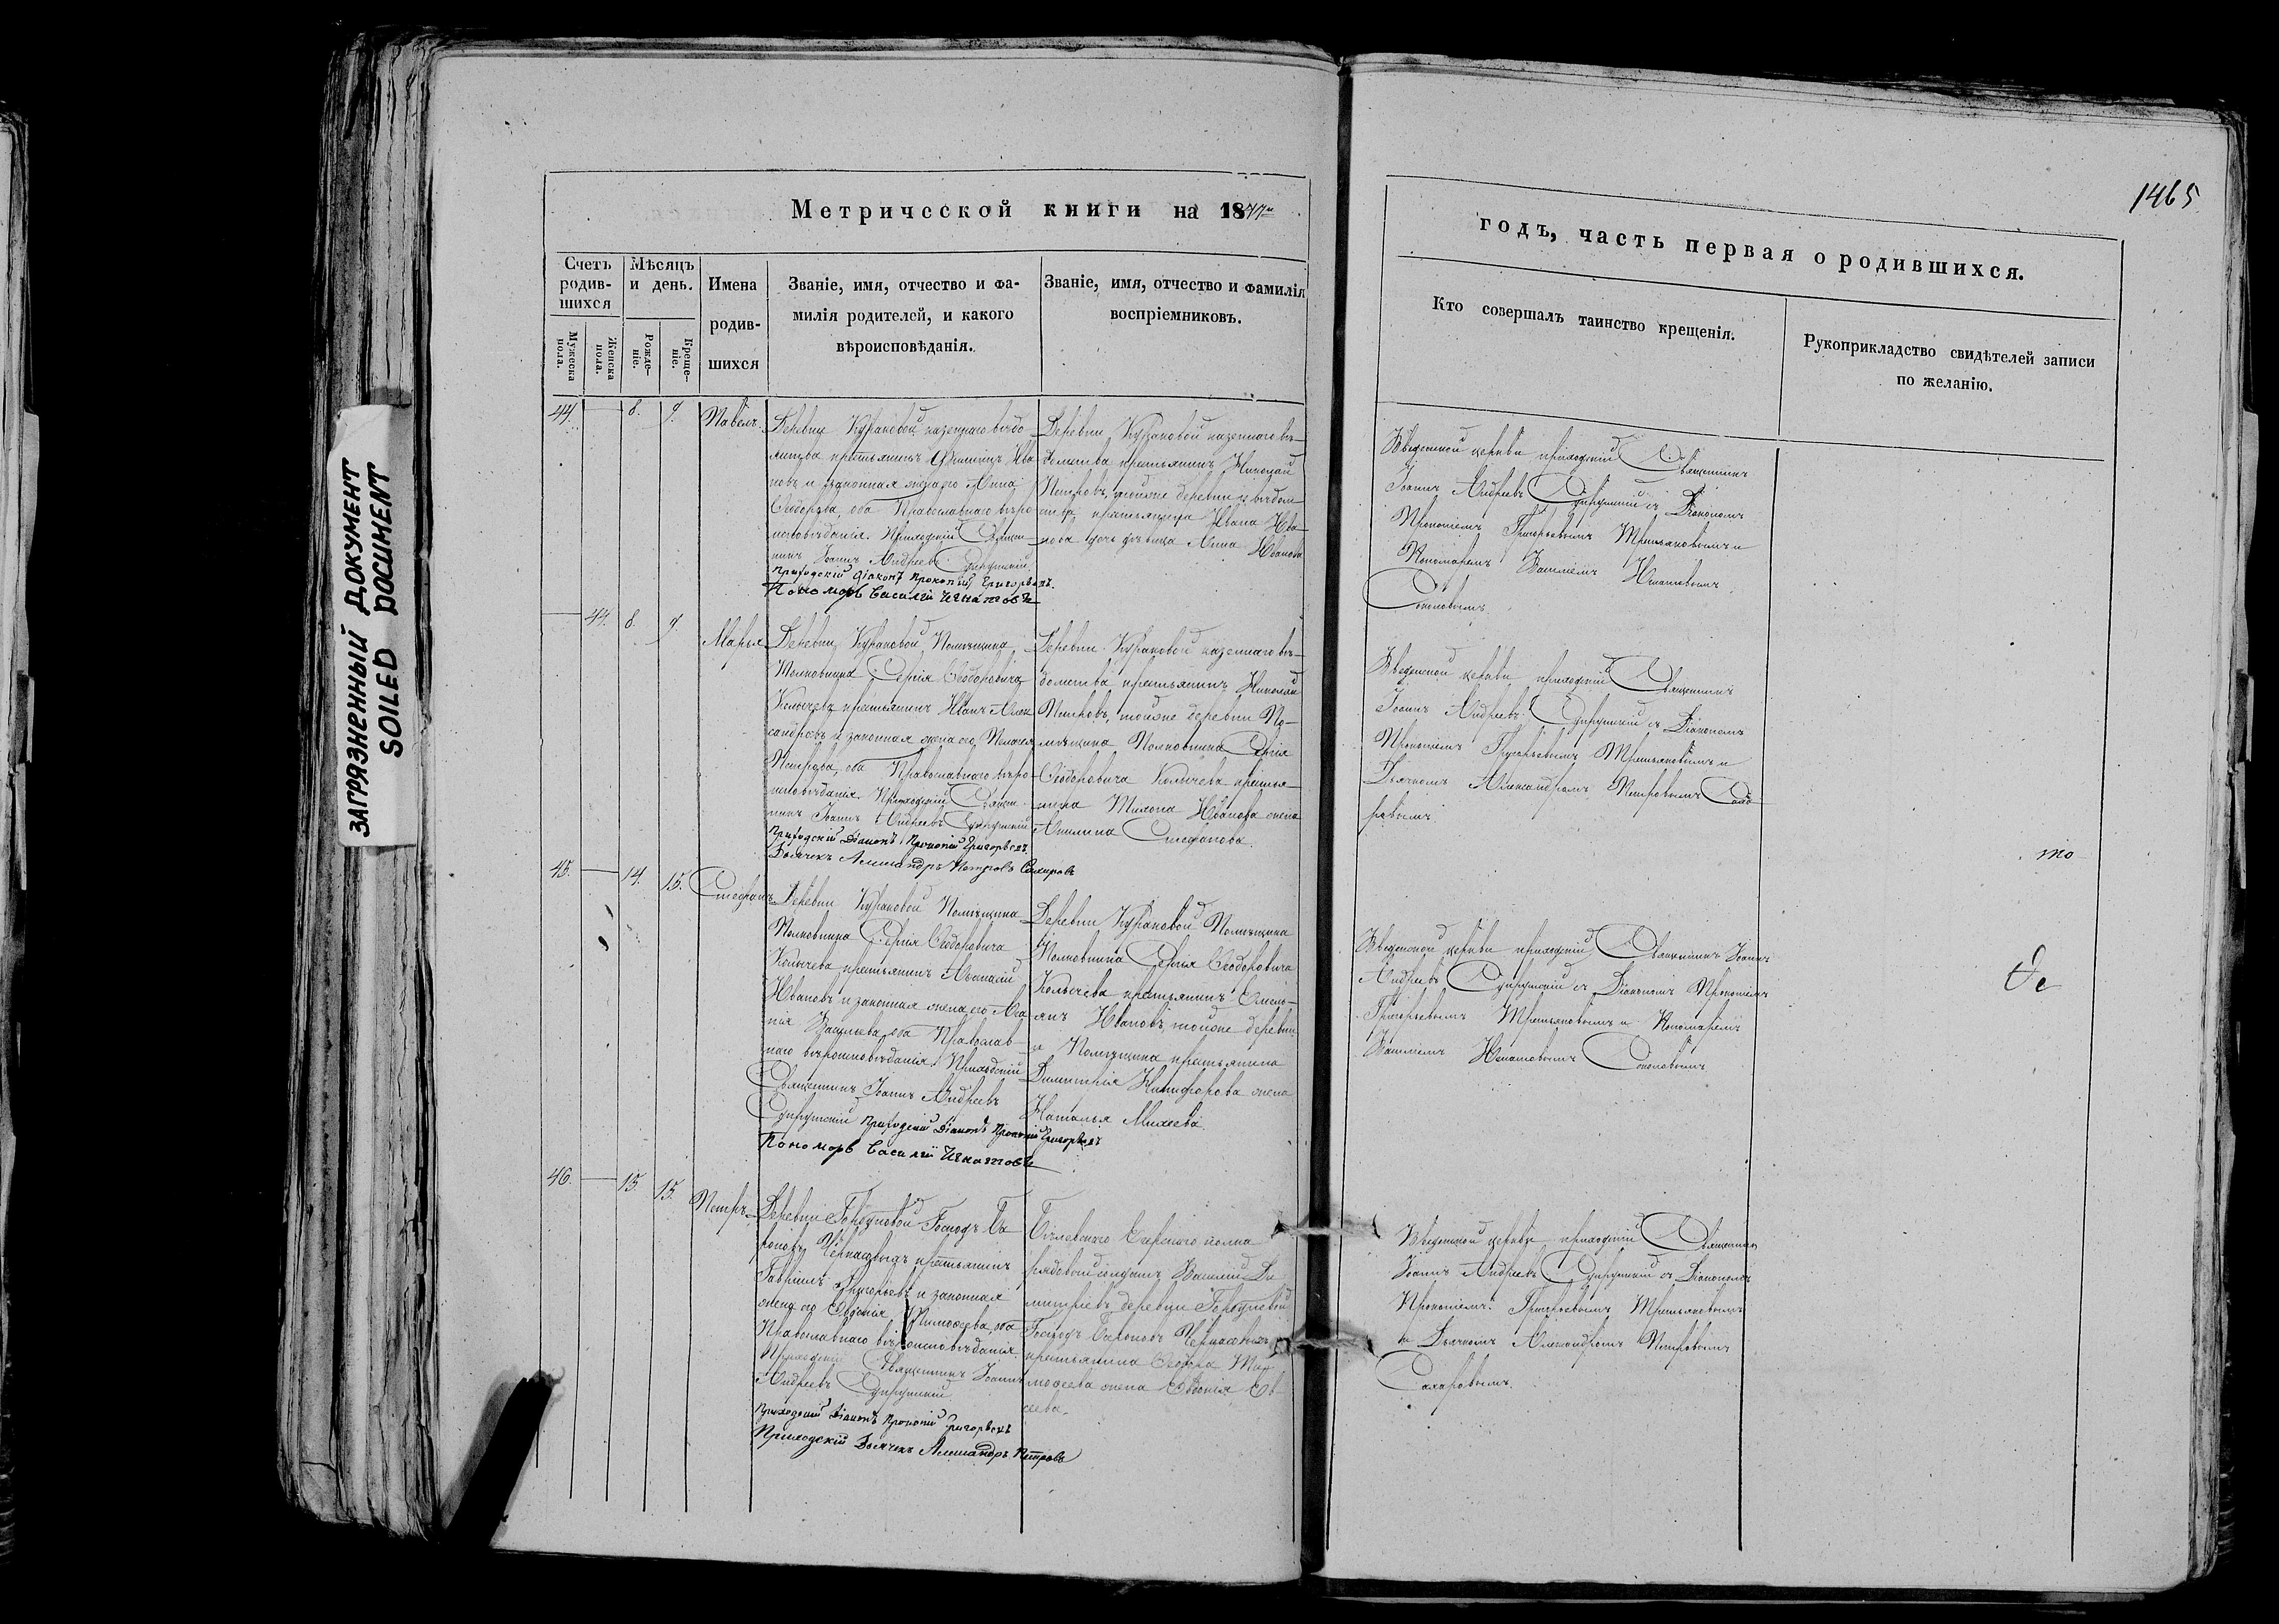 ЗАГРЯЗНЕННЫЙ ДОКУМЕНТ
SOILED DOCUMENT
Метрической книги на 1847й
годъ, часть первая о родившихся.
1465
Счетъ родив-шихся
Мужеска пола.
Женска пола.
Мѣсяцъ и день.
Рожде-ніе.
Креще-ніе.
Имена
родив-
шихся
Званіе, имя, отчество и фа-
милія родителей, и какого
вѣроисповѣданія.
Званіе, имя, отчество и фамилія
воспріемниковъ.
Кто совершалъ таинство крещенія.
Рукоприкладство свидѣтелей записи
по желанію.
44. 8. 9. Павелъ.
Деревни Кураковой казеннаго вѣдо-
мства крестьянинъ Филиппъ Ива
новъ и законная жена его Анна
Ѳеодорова, оба Православнаго вѣро
исповѣданія. Приходскій Священ
никъ Іоаннъ Андреевъ
Приходскій Діаконъ Прокопій Григорьевъ.
Пономарь Василій Игнатовъ
Деревни Кураковой казеннаго вѣ-
домства крестьянинъ Николай
Петровъ, тойже деревни и вѣдом-
ства крестьянина Ивана Ива-
нова дочь дѣвица Анна Иванова
Введенской церкви приходскій Священникъ
Іоаннъ Андреевъ съ Діакономъ
Прокопіемъ Григорьевымъ Третьяковымъ и
Пономаремъ Василіемъ Игнатовымъ
Соколовымъ
44. 8. 9. Марья
Деревни Кураковой Помѣщика
Полковника Сергія Ѳеодоровича
Колычева крестьянинъ Иванъ Алек
сандровъ и законная жена его Пелагея
Петрова, оба Православнаго вѣро
исповѣданія. Приходскій Священ
никъ Іоаннъ Андреевъ
Приходскій Діаконъ Прокопій Григорьевъ.
Дьячекъ Александръ Петровъ Сахаровъ
Деревни Кураковой казеннаго вѣ-
домства крестьянинъ Николай
Петровъ, тойже деревни По-
мѣщика Полковника Сергія
Ѳеодоровича Колычева крестья-
нина Ивана Иванова жена
Акилина Стефанова.
Введенской церкви приходскій Священникъ
Іоаннъ Андреевъ съ Діакономъ
Прокопіемъ Григорьевымъ Третьяковымъ и
Дьячкомъ Александромъ Петровымъ Саха
ровымъ
то
45. 14. 15. Стефанъ
Деревни Кураковой Помѣщика
Полковника Сергія Ѳеодоровича
Колычева крестьянинъ Аѳанасій
Ивановъ и законная жена его Ага
пія Васильева оба Православ-
наго вѣроисповѣданія. Приходскій
Священникъ Іоаннъ Андреевъ
Приходскій Діаконъ Прокопій Григорьевъ
Пономарь Василій Игнатовъ
Деревни Кураковой Помѣщика
Полковника Сергія Ѳеодоровича
Колычева крестьянинъ Емель-
янъ Ивановъ, тойже деревни
и Помѣщика крестьянина
Димитрія Никифорова жена
Наталья Михеева.
Введенской церкви приходскій Священникъ Іоаннъ
Андреевъ съ Діакономъ Прокопіемъ
Григорьевымъ Третьяковымъ и Пономаремъ
Василіемъ Игнатовымъ Соколовымъ
46. 15. 15. Петръ
Деревни Господъ Ба
роновъ Черкасовыхъ крестьянинъ
Гавріилъ Григорьевъ и законная
жена его Евдокія Тимоѳеева, оба
Православнаго вѣроисповѣданія.
Приходскій Священникъ Іоаннъ
Андреевъ
Приходскій Діаконъ Прокопій Григорьевъ
Приходскій Дьячекъ Александръ Петровъ
Бѣлевскаго Егерскаго полка
рядовый солдатъ Василій Ди
митріевъ, деревни
Господъ Бароновъ Черкасовыхъ
крестьянина Ѳеодора Ти
моѳеева жена Евдокія Ев
сеева.
Введенской церкви приходскій Священникъ
Іоаннъ Андреевъ съ Діакономъ
Прокопіемъ Григорьевымъ Третьяковымъ
и Дьячкомъ Александромъ Петровымъ
Сахаровымъ.